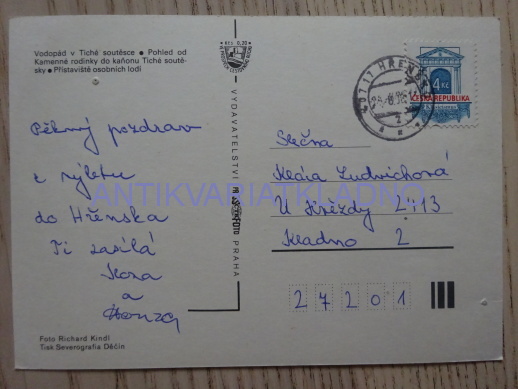 Vodopád v Tiché soutěsce • Pohled od
Kamenné rodinky do kaňonu Tiché soutě-
sky • Přístaviště osobních lodí
Pěkný pozdrav
z výletu
do Hřenska
Ti zasílá
a
Honza
Foto Richard Kindl
Tisk Severografia Děčín
Kčs 0,30
VYDAVATELSTVÍ
PRAHA
407 17 HŘENSKO
4 Kč
ČESKÁ REPUBLIKA
Slečna
Klára Ludvichová
U Hvězdy 2113
Kladno 2
27201
ANTIKVARIATKLADNO